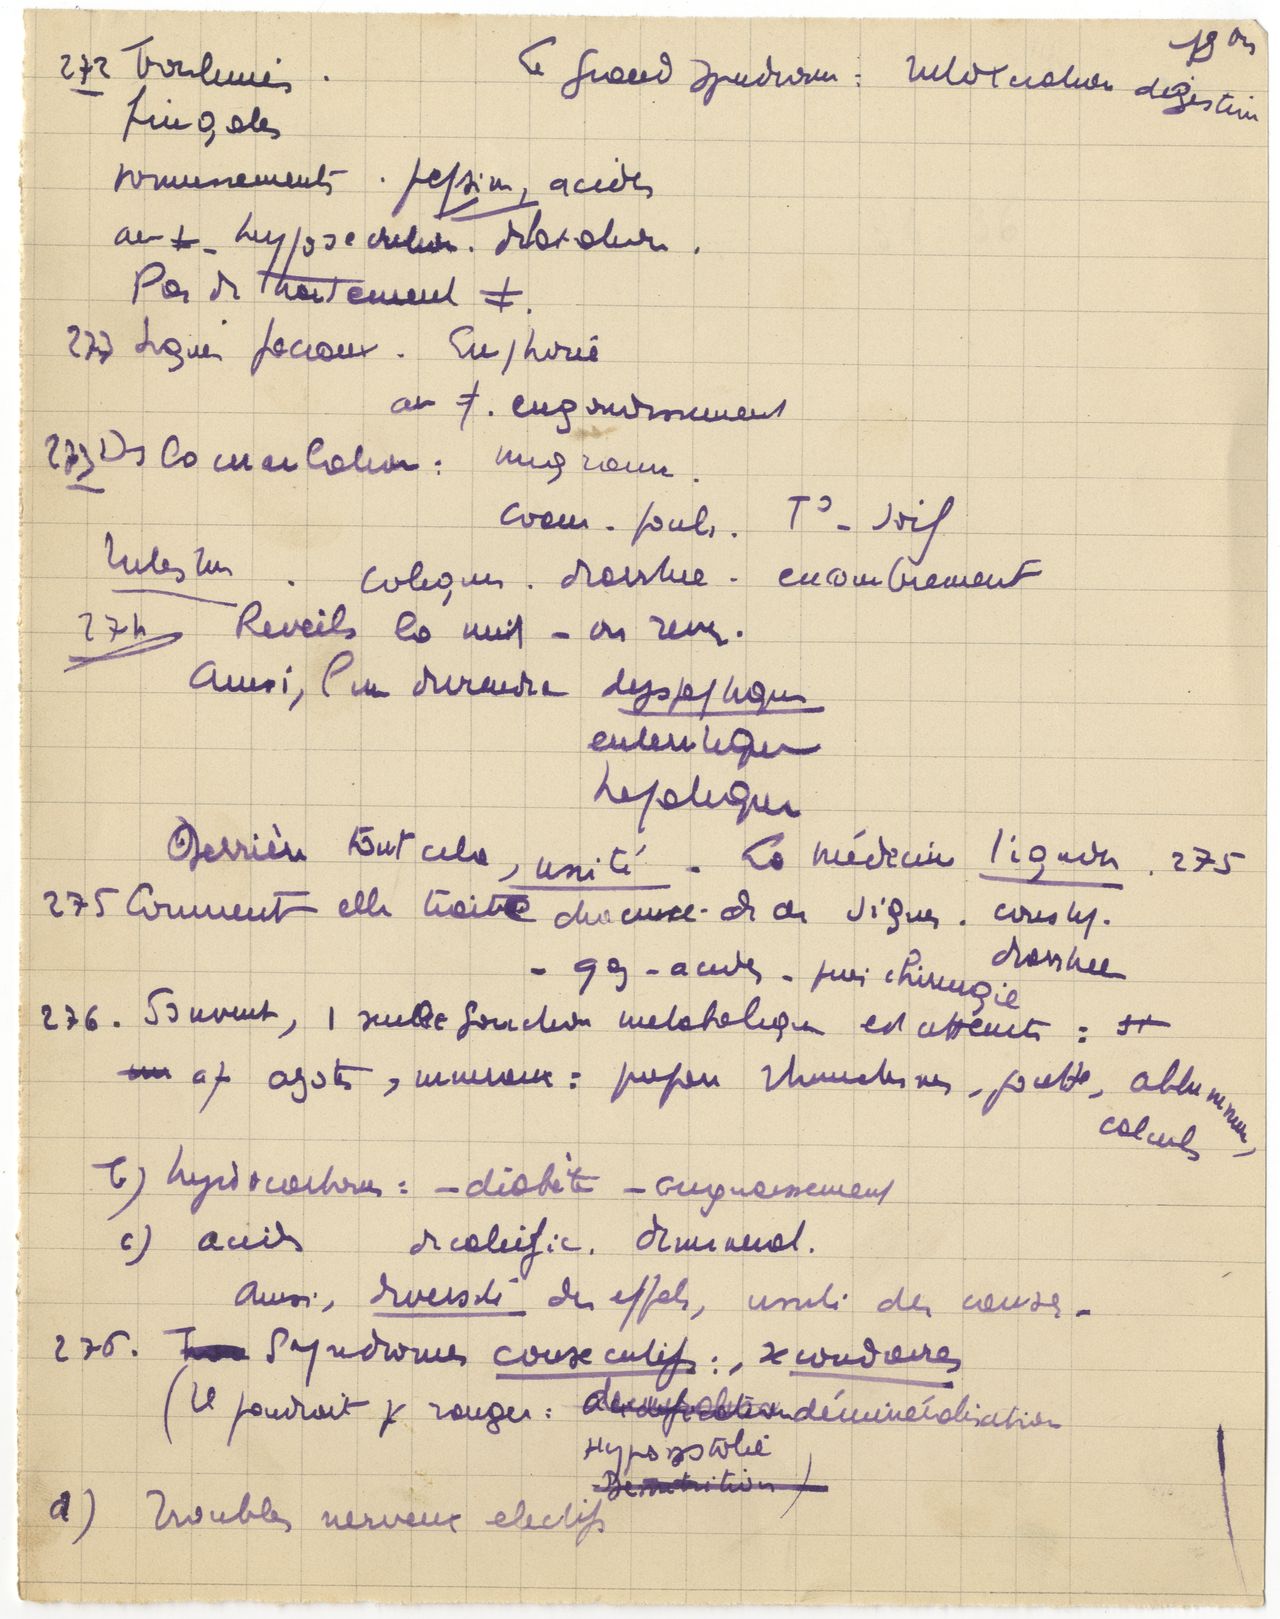 272 Boulimies . Le grand syndrome : intoxication digestive
fringales
vomissements . pepsine, acides
au ≠ - hyposecretion. dilatation.
Pas de traitement ≠.
277 signes faciaux . Euphorie
au ≠. engourdissement
273 Ds la circulation : migraine.
coeur - pouls. T° - soif
Intestin . coliques . diarrhée . encombrement
274 Reveils la nuit - on reve.
Aussi, l'on deviendra dyspeptique
enteritique
hepatique
Derrière tout cela, unité - La médecine l'ignore . 275
275 Comment elle traite chacune de ces signes . constip.
diarrhée
- gaz - acides - puis chirurgie
276. Souvent, 1 seule fonction metabolique est atteinte :
a/ azotes, mineraux : purpura rhumatismes, goutte, albuminurie,
calculs
b) hydrocarbones : - diabète - engraissement
c) acides decalcific. demineral.
Aussi, diversité des effets, unité des causes -
276. Syndromes consecutifs :, secondaires
(il faudrait y ranger : déminéralisation
Hyposystolie
Denutrition )
a) Troubles nerveux electifs